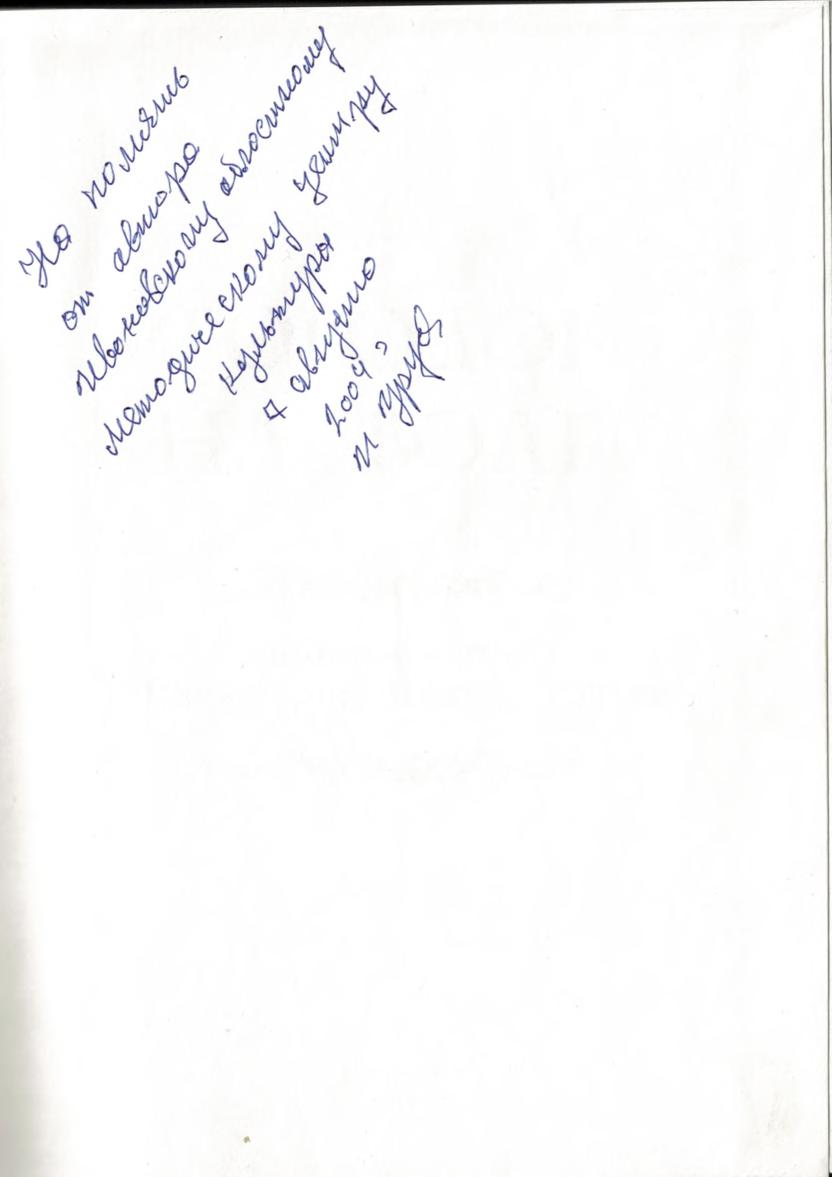 На память
от автора
Ивановскому областному
методическому центру
культуры
7 августа
2004 г